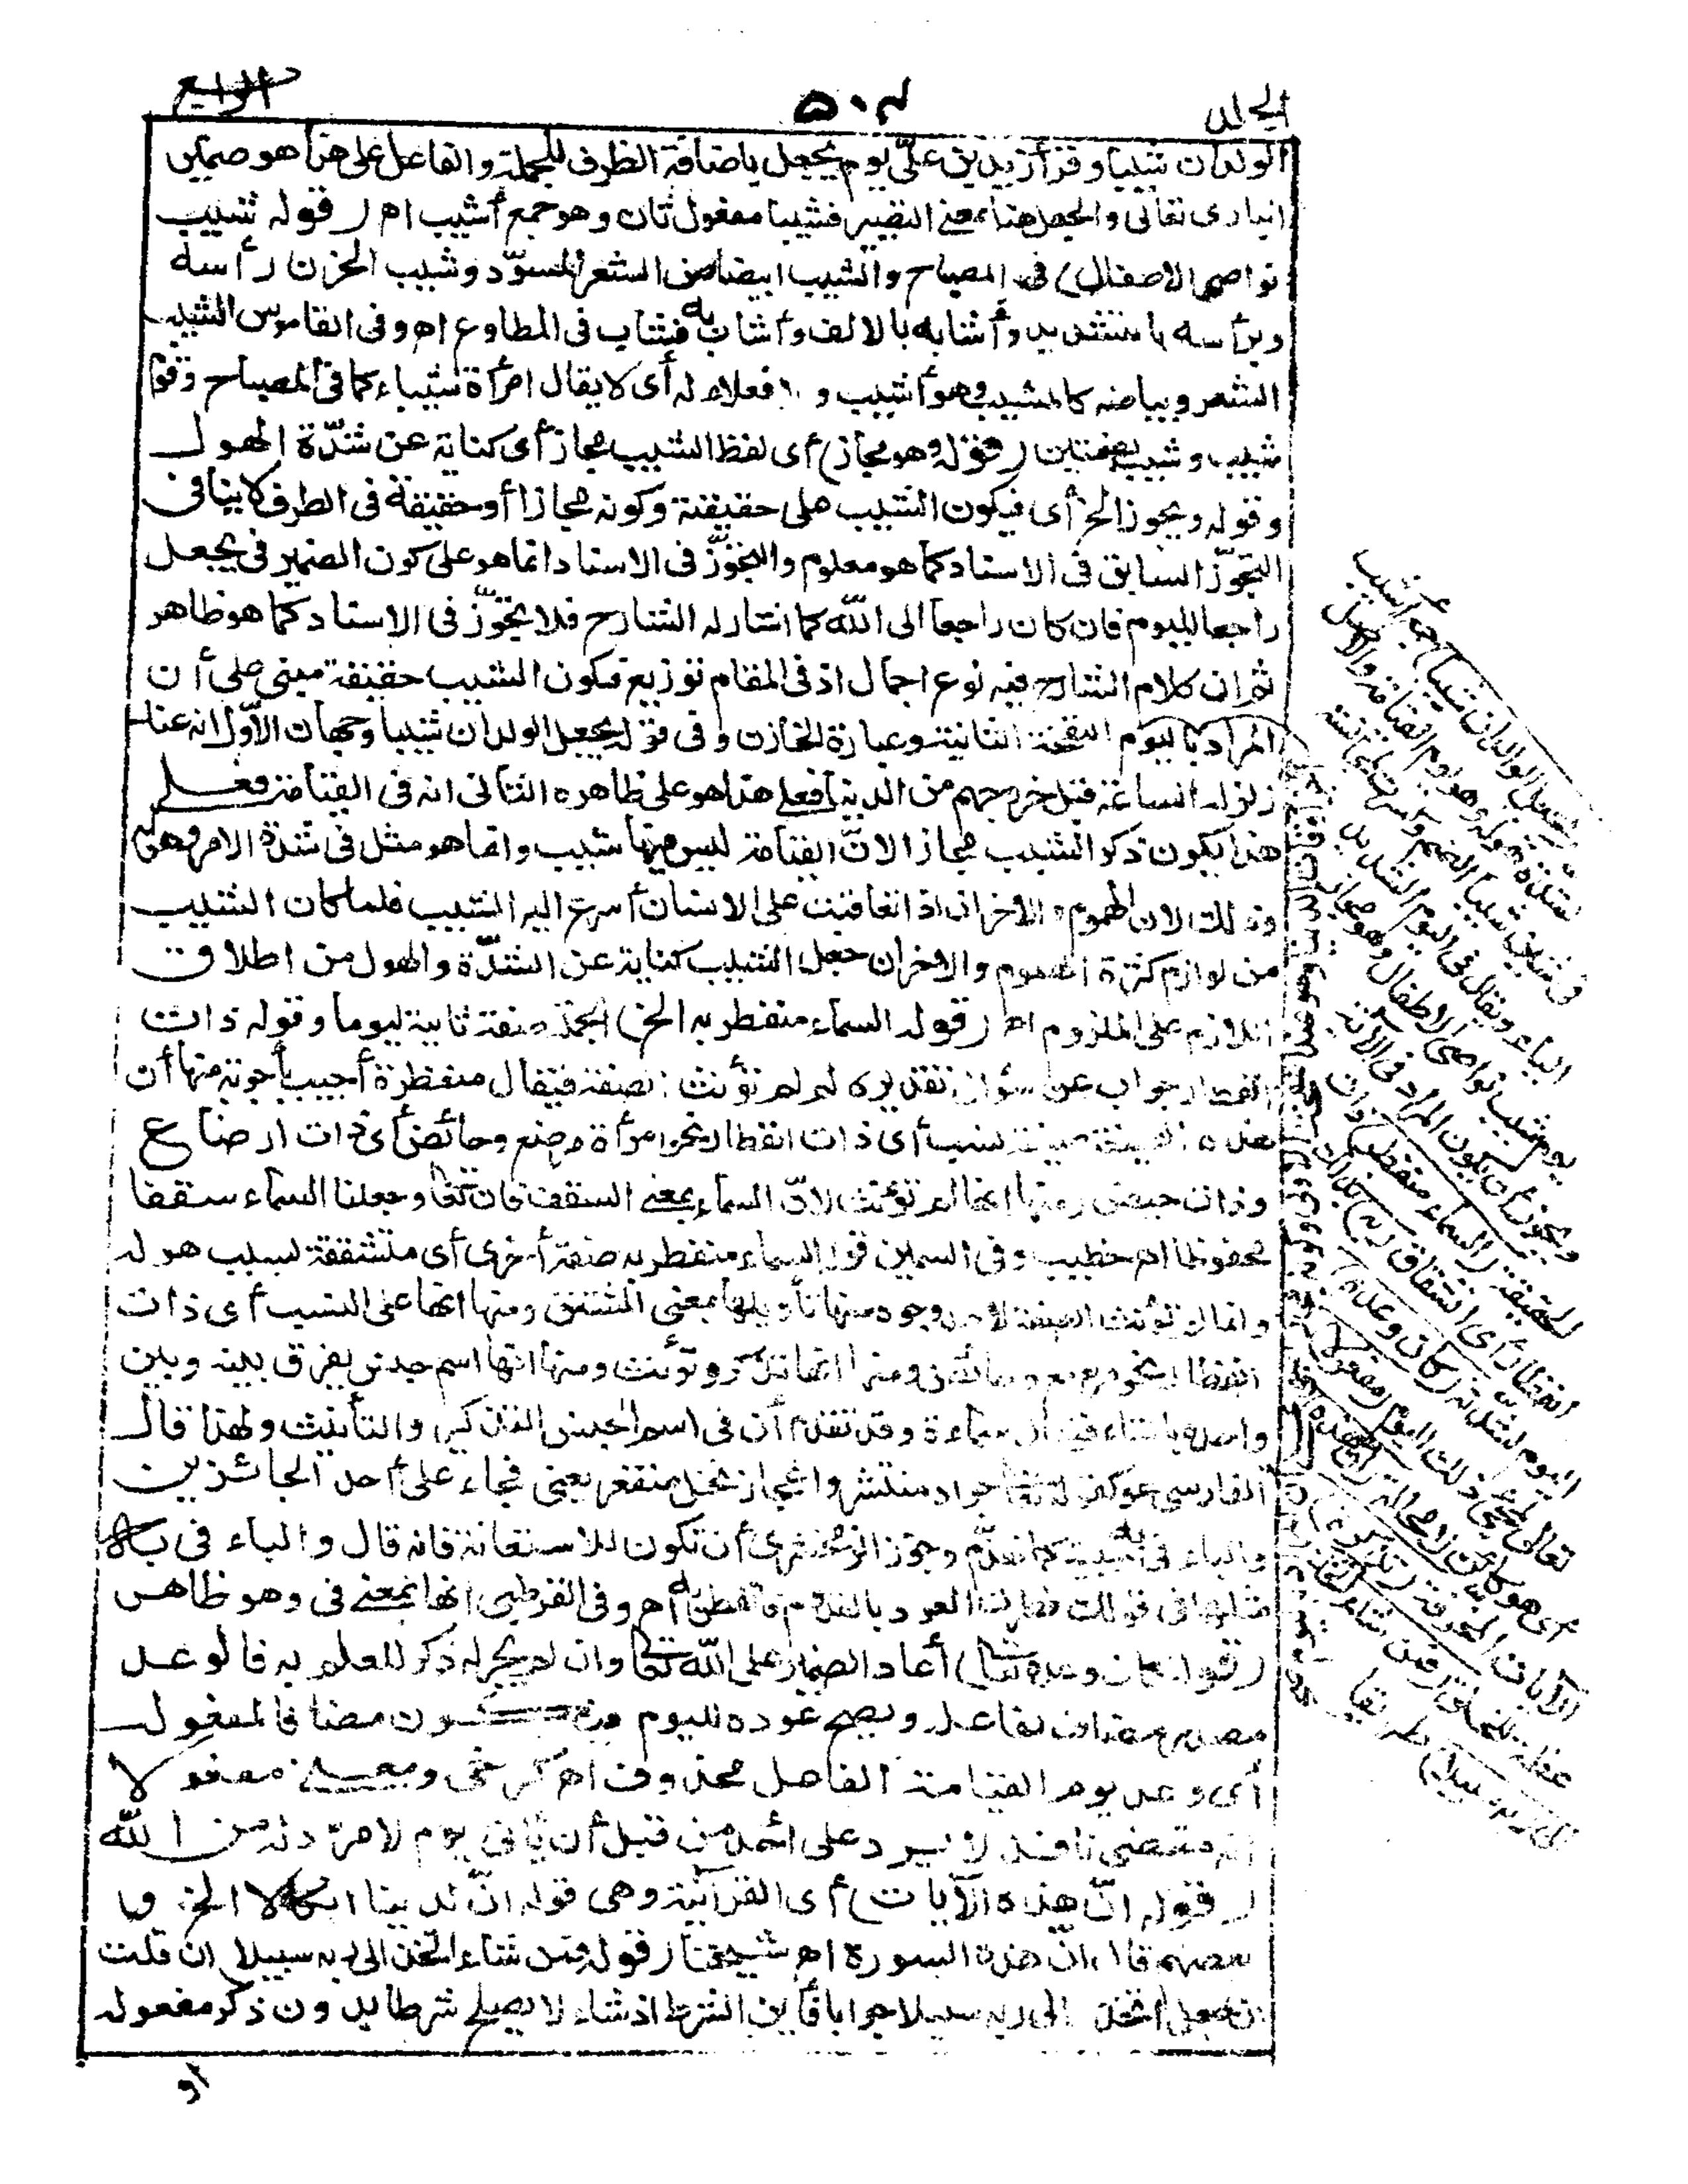 الجلد
٥٠٢
الرابع
الولدان شيبا وقرأ زيد بن علىّ يوم يجعل باضافة الظرف للجملة والفاعل على هذا هو ضمير
البارى تعالى والجعل هنا بمعنى التصيير فشيبا مفعول ثان وهو جمع أشيب اه (قوله تشيب
نواصى الاطفال) فى المصباح والشيب ابيضاض الشعر المسودّ وشيب الحزن رأسه
وبرأسه بالتشديد وأشابه بالالف وأشاب به فشاب فى المطاوع اه وفى القاموس الشيب
الشعر وبياضه كالمشيب وهو أشيب ولا فعلاء له أى لا يقال امرأة شيباء كما فى المصباح وقوم
شيب وشيب بضمتين (قوله وهو مجاز) أى لفظ الشيب مجاز أى كناية عن شدّة الهول
وقوله ويجوز الخ أى فيكون الشيب على حقيقته وكونه مجازا أو حقيقة فى الطرف لا ينافى
التجوّز السابق فى الاسناد كما هو معلوم والتجوّز فى الاسناد انما هو على كون الضمير فى يجعل
راجعا لليوم فان كان راجعا الى الله كما أشار له الشارح فلا تجوّز فى الاسناد كما هو ظاهر
ثم ان كلام الشارح فيه نوع اجمال اذ فى المقام توزيع فكون الشيب حقيقة مبنى على أن
المراد باليوم النفخة الثانية وعبارة الخازن وفى قوله يجعل الولدان شيبا وجهان الأوّل انه عند
زلزلة الساعة قبل خروجهم من الدنيا فعلى هذا هو على ظاهره الثانى انه فى القيامة فعلى
هذا يكون ذكر الشيب مجازا لانّ القيامة ليس فيها شيب وانما هو مثل فى شدّة الامر وهوله
وذلك لان الهموم والاحزان اذا تعاقبت على الانسان أسرع اليه الشيب فلما كان الشيب
من لوازم كثرة الهموم والاحزان جعل الشيب كناية عن الشدّة والهول من اطلاق
اللازم على الملزوم اه (قوله السماء منفطر به الخ) الجملة صفة ثانية ليوما وقوله ذات
انفطار جواب عن سؤال تقديره لم لم تؤنث الصفة فيقال منفطرة أجيب بأجوبة منها أن
هذه الصيغة صيغة نسب أى ذات انفطار نحو امرأة مرضع وحائض أى ذات ارضاع
وذات حيض ومنها انها لم تؤنث لانّ السماء بمعنى السقف قال تعالى وجعلنا السماء سقفا
محفوظا اه خطيب وفى السمين قوله السماء منفطر به صفة أخرى أى متشققة بسبب هوله
وانما لم تؤنث الصفة لاحد وجوه منها تأويلها بمعنى المشتق ومنها انها على النسب أى ذات
انفطار نحو مرضع وحائض ومنها انها تذكر وتؤنث ومنها انها اسم جنس يفرق بينه وبين
واحده بالتاء فيقال سماءة وقد تقدّم أن فى اسم الجنس التذكير والتأنيث ولهذا قال
الفارسى هو كقوله تعالى جراد منتشر وأعجاز نخل منقعر يعنى فجاء على أحد الجائزين
والباء فى به سببية كما تقدّم وجوّز الزمخشرى أن تكون للاستعانة فانه قال والباء فى به
مثلها فى قولك فطرت العود بالقدوم فانفطر به اه وفى القرطبى انها بمعنى فى وهو ظاهر
(قوله كان وعده تعالى) أعاد الضمير على الله تعالى وان لم يجر له ذكر للعلم به فالوعد
مصدر مضاف لفاعله ويصح عوده لليوم فيكون مضافا لمفعوله
أى وعد يوم القيامة الفاعل محذوف اه كرخى ومعنى مفعولا
انه مقضى نافذ لا يرد على أنه من قبل أن يأتى يوم لا مردّ له من الله
(قوله انّ هذه الآيات) أى القرآنية وهى قوله انّ لدينا أنكالا الخ وبا
بعضهم قال انّ هذه السورة اه شيخنا (قوله فمن شاء اتخذ الى ربه سبيلا) ان قلت
ان جعل اتخذ الى ربه سبيلا جوابا فأين الشرط اذ شاء لا يصلح شرطا بدون ذكر مفعوله
او
يجعل الولدان شيبا) جمع أشيب
لشدّة هوله وهو يوم القيامة والاصل
فى شين شيبا الضم وكسرت لمجانسة
الياء ويقال فى اليوم الشديد
يوم يشيب نواصى الاطفال وهو مجاز
ويجوز أن يكون المراد فى الآية
الحقيقة (السماء منفطر) ذات
انفطار أى انشقاق (به) بذلك
اليوم لشدّته (كان وعده)
تعالى بمجىء ذلك اليوم (مفعولا)
أى هو كائن لا محالة (انّ هذه)
الآيات المخوفة (تذكرة)
عظة للخلق (فمن شاء اتخذ
الى ربه سبيلا) طريقا